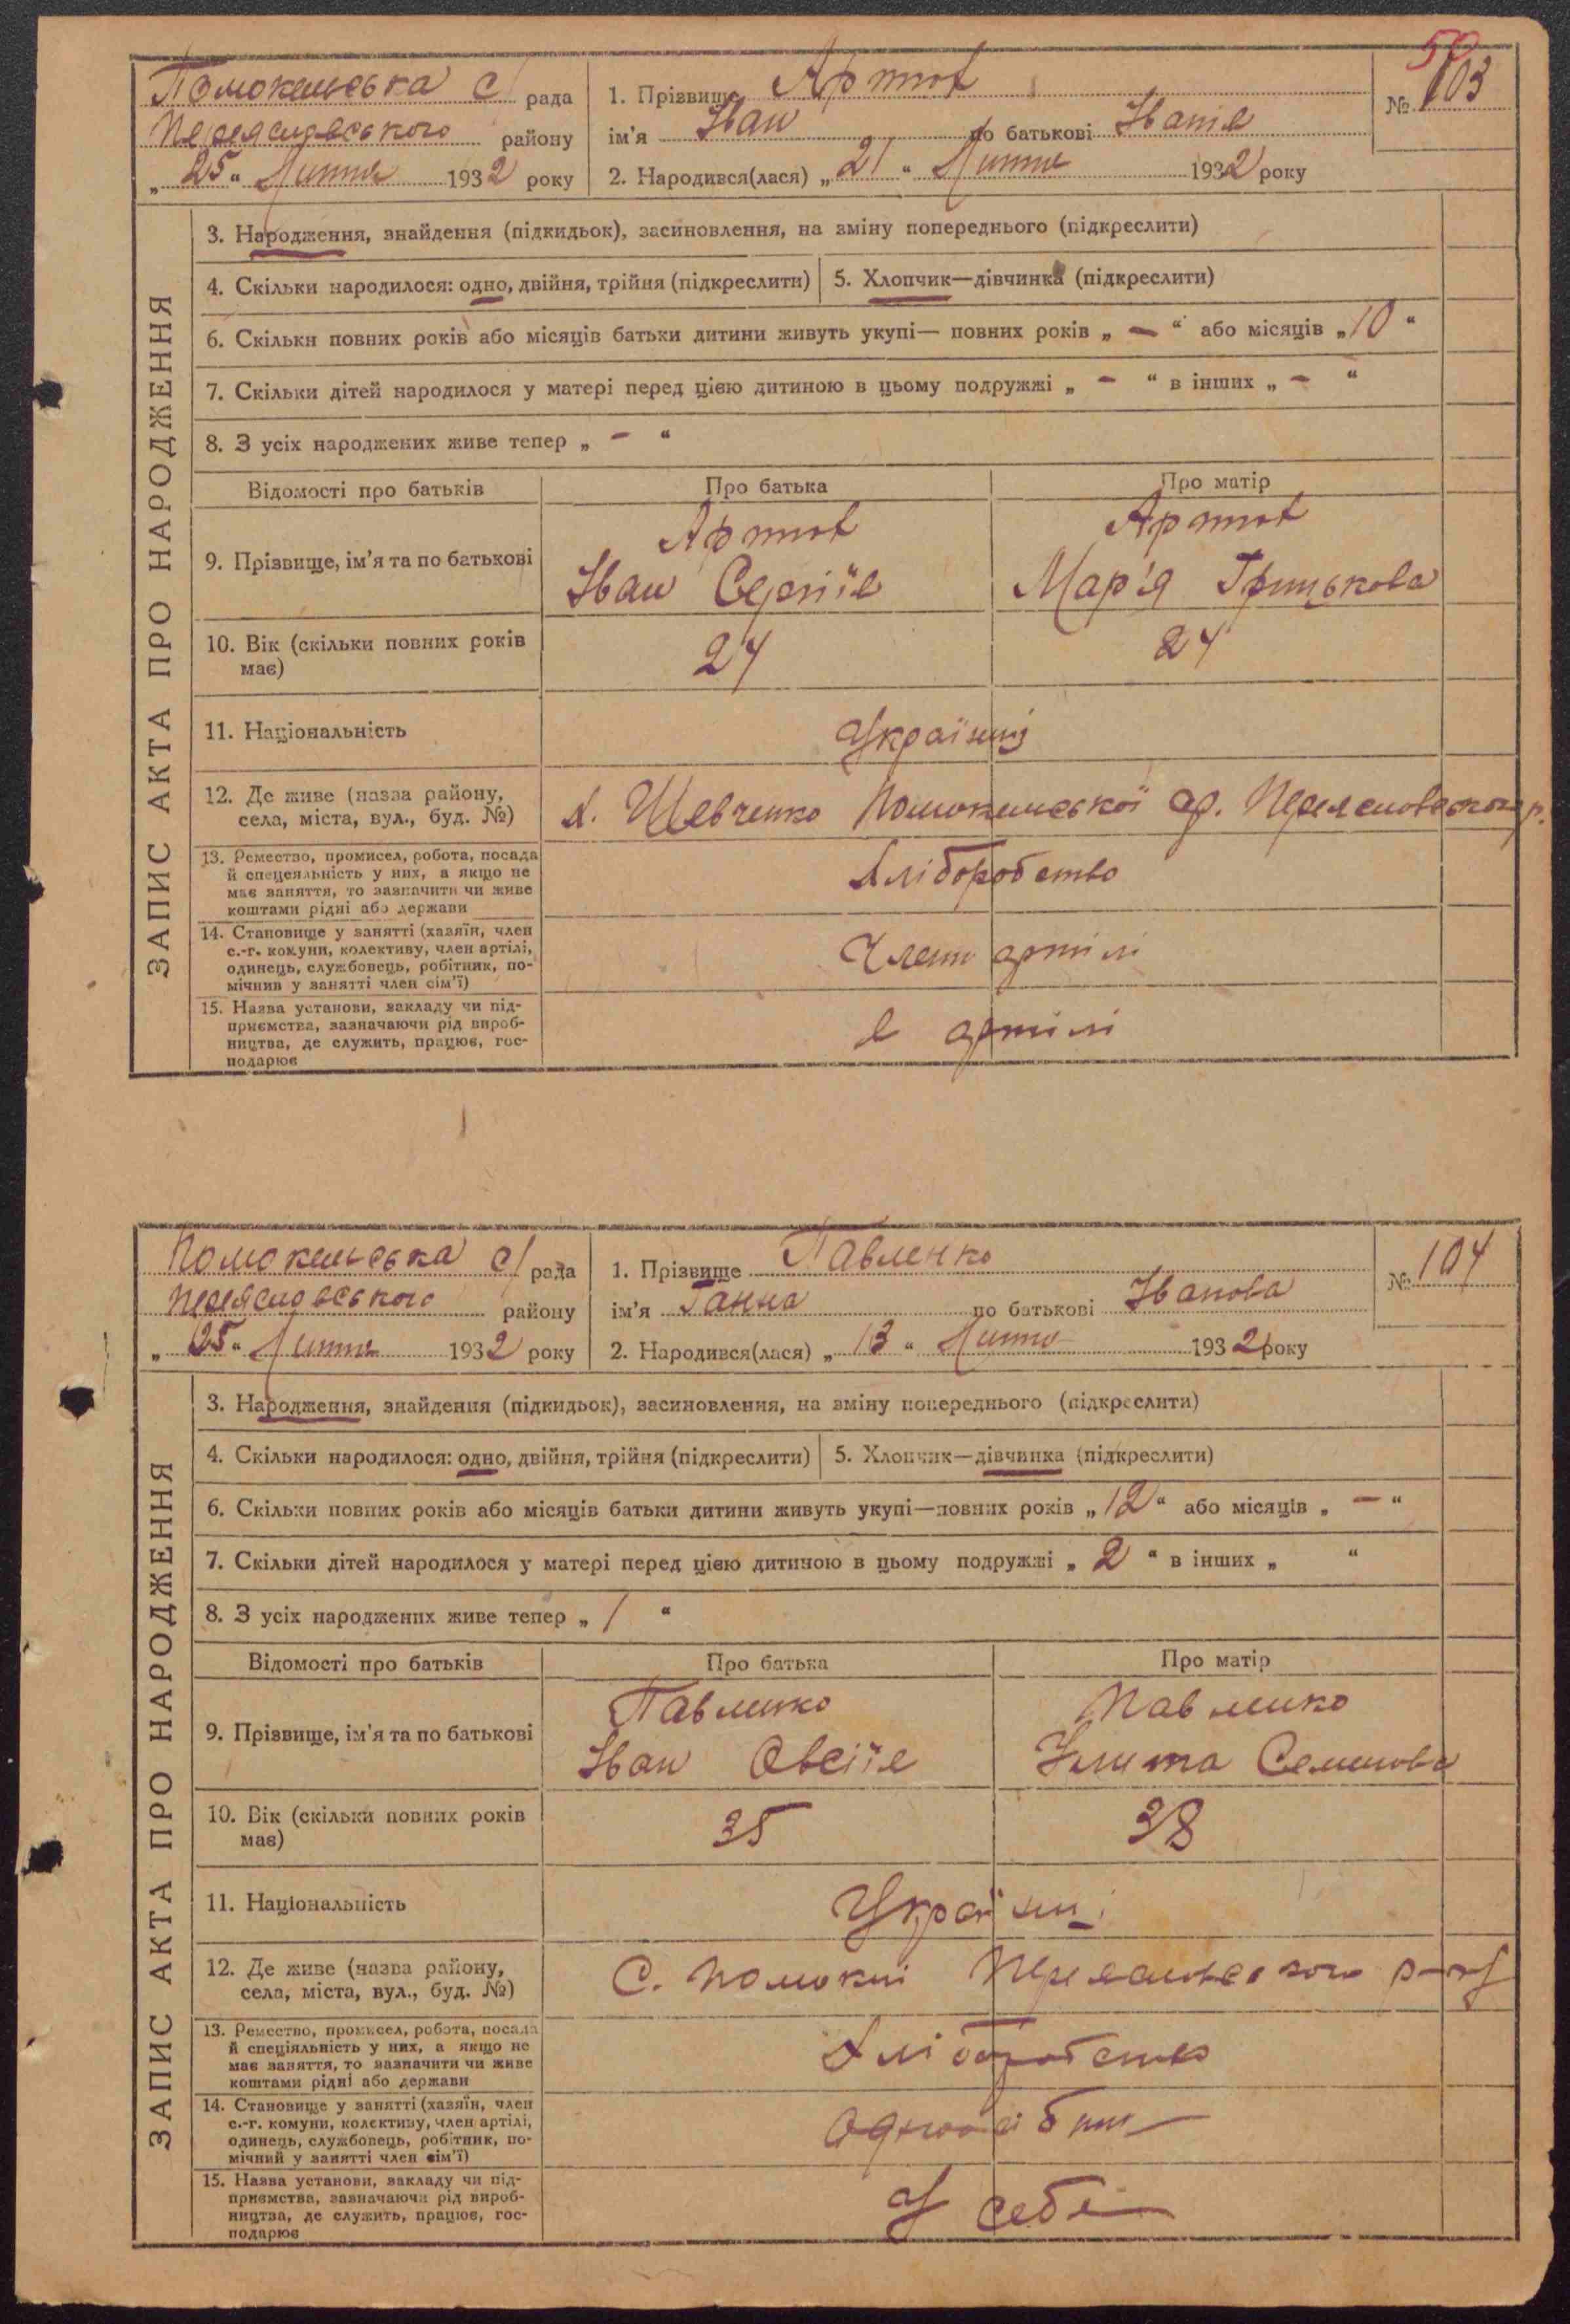 50
Помокельська с/ рада
Переяславського району
„ 25 “ Липня 1932 року
1. Прізвище Артюх
ім'я Іван по батькові Іванів
2. Народився(лася) „ 21 “ Липня 1932 року
№ 103
ЗАПИС АКТА ПРО НАРОДЖЕННЯ
3. Народження, знайдення (підкидьок), засиновлення, на зміну попереднього (підкреслити)
4. Скільки народилося: одно, двійня, трійня (підкреслити) 5. Хлопчик—дівчинка (підкреслити)
6. Скільки повних років або місяців батьки дитини живуть укупі— повних років „ — “ або місяців „ 10 “
7. Скільки дітей народилося у матері перед цією дитиною в цьому подружжі „ - “ в інших „ - “
8. З усіх народжених живе тепер „ - “
Відомості про батьків Про батька Про матір
9. Прізвище, ім'я та по батькові
Артюх Артюх
Іван Сергіїв Мар'я Грицькова
10. Вік (скільки повних років
має)
24 24
11. Національність Українці
12. Де живе (назва району,
села, міста, вул., буд. №)
х. Шевченко Помокельської ср. Переяславського р.
13. Ремество, промисел, робота, посада
й спецеяльність у них, а якщо не
має заняття, то зазначити чи живе
коштами рідні або держави
Хліборобство
14. Становище у занятті (хазяїн, член
с.-г. комуни, колективу, член артілі,
одинець, службовець, робітник, по-
мічник у занятті член сім'ї)
Член артілі
15. Назва установи, закладу чи під-
приємства, зазначаючи рід вироб-
ництва, де служить, працює, гос-
подарює
в артілі
Помокельська с/ рада
Переяславського району
„ 25 “ Липня 1932 року
1. Прізвище Павленко
ім'я Ганна по батькові Іванова
2. Народився(лася) „ 13 “ Липня 1932 року
№ 104
ЗАПИС АКТА ПРО НАРОДЖЕННЯ
3. Народження, знайдення (підкидьок), засиновлення, на зміну попереднього (підкреслити)
4. Скільки народилося: одно, двійня, трійня (підкреслити) 5. Хлопчик—дівчинка (підкреслити)
6. Скільки повних років або місяців батьки дитини живуть укупі—повних років „ 12 “ або місяців „ — “
7. Скільки дітей народилося у матері перед цією дитиною в цьому подружжі „ 2 “ в інших „ “
8. З усіх народжених живе тепер „ 1 “
Відомості про батьків Про батька Про матір
9. Прізвище, ім'я та по батькові
Павленко Павленко
Іван Овсіїв Улита Семенова
10. Вік (скільки повних років
має)
35 38
11. Національність Українці
12. Де живе (назва району,
села, міста, вул., буд. №)
С. Помоклі Переяславського р-ну
13. Ремество, промисел, робота, посада
й спеціяльність у них, а якщо не
має заняття, то зазначити чи живе
коштами рідні або держави
Хліборобство
14. Становище у занятті (хазяїн, член
с.-г. комуни, колективу, член артілі,
одинець, службовець, робітник, по-
мічний у занятті член сім'ї)
Одноосібник
15. Назва установи, закладу чи під-
приємства, зазначаючи рід вироб-
ництва, де служить, працює, гос-
подарює
У себе